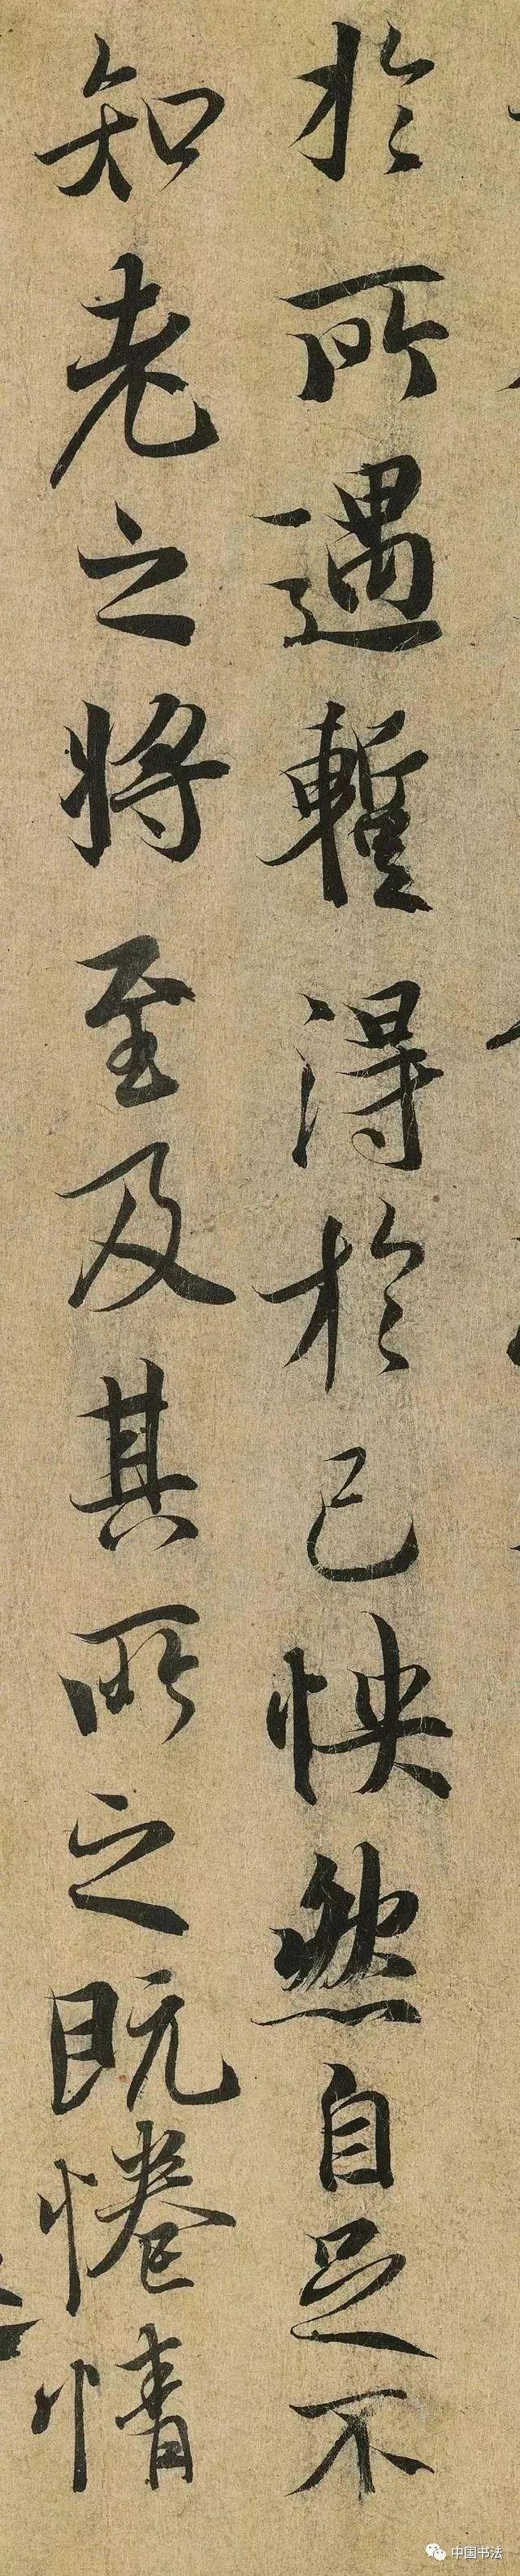 於所遇暫得於己怏然自足不
知老之將至及其所之既惓情
中国书法